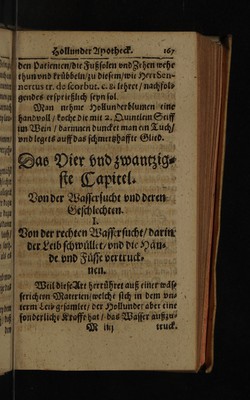 Hollunder Apotheck. 167
den Patienten/die Fußsolen vnd Zehen wehe
thun vnd krübbeln/zu diesem/wie Herr Sen-
nertus tr. de scorbut. c. 8. lehret/nachfol-
gendes ersprießlich seyn sol.
Man nehme Hollunderblumen eine
handvoll/koche die mit 2. Quintlein Seiff
im Wein/darinnen duncket man ein Tuch/
vnd legets auff das schmertzhaffte Glied.
Das Vier vnd zwantzig-
ste Capitel.
Von der Wassersucht vnd deren
Geschlechten.
I.
Von der rechten Wassersucht/darin
der Leib schwüllet/vnd die Hän-
de vnd Füsse vertruck-
nen.
Weil diese Art herrühret auß einer wäs-
serichten Materien/welche sich in dem vn-
tern Leib gesamlet/der Hollunder aber eine
sonderliche Krafft hat/das Wasser außzu-
M iiij truck.